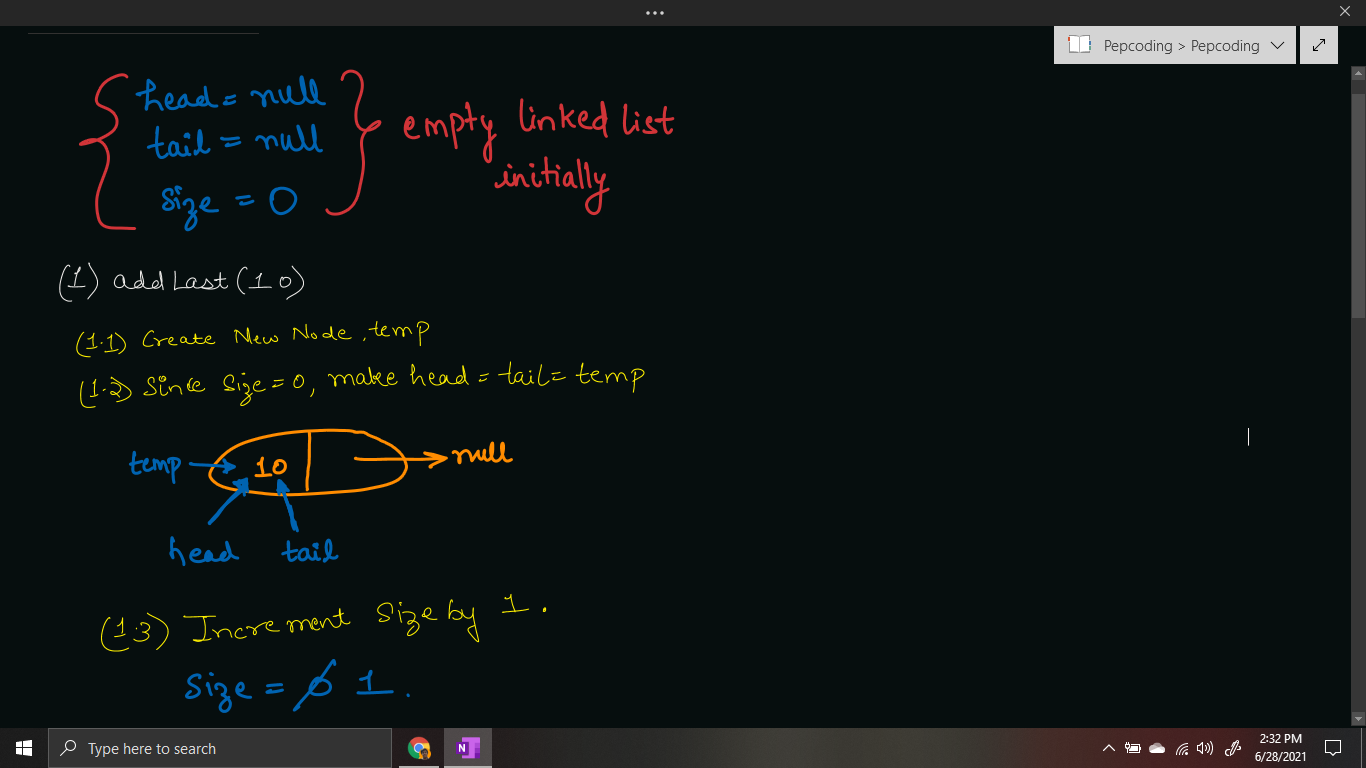 Pepcoding > Pepcoding
head = null
tail = null
size = 0
empty linked list
initially
(1) addLast(10)
(1.1) Create New Node, temp
(1.2) Since Size = 0, make head = tail = temp
temp 10 null
head tail
(1.3) Increment Size by 1.
Size = 0 1.
Type here to search
2:32 PM
6/28/2021